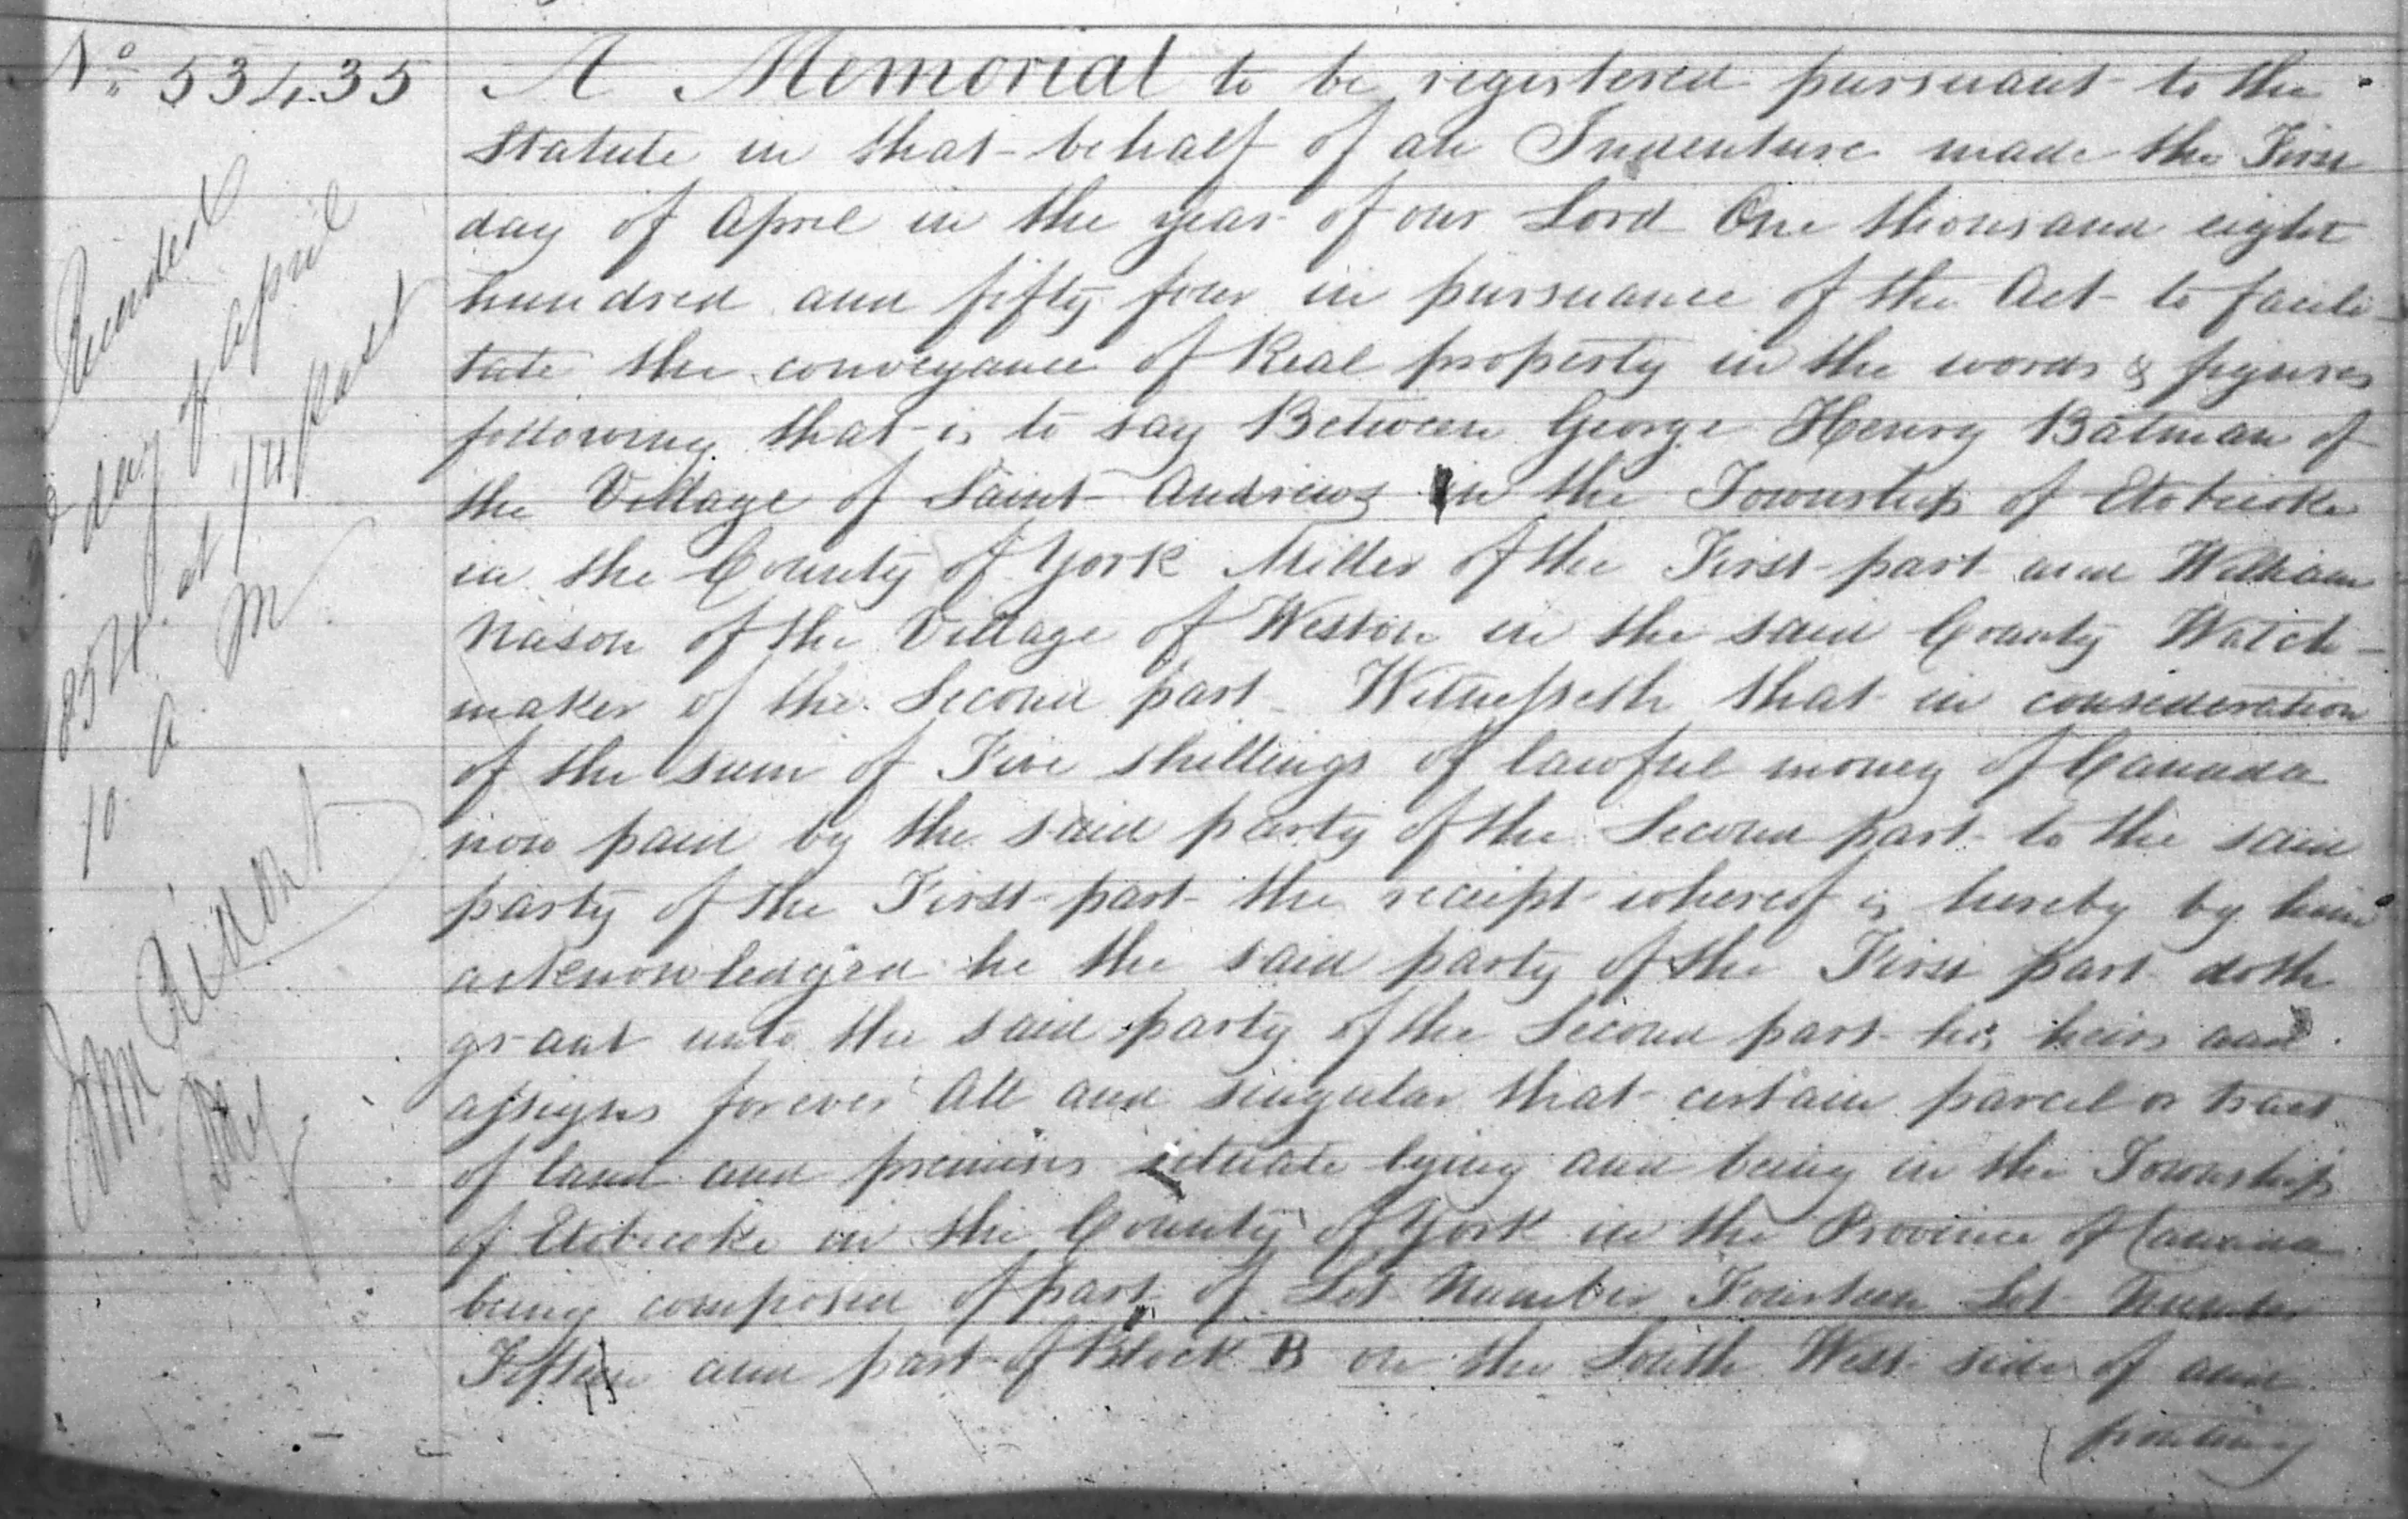 No 53435
A Memorial to be registered pursuant to the
Statute in that behalf of an Indenture made the First
day of April in the year of our Lord One thousand eight
hundred and fifty four in pursuance of the Act to facili-
tate the conveyance of Real property in the words & figures
following that is to say Between George Henry Batman of
the Village of Saint Andrews in the Township of Etobicoke
in the County of York Miller of the First part and William
Nason of the Village of Weston in the said County Watch-
maker of the Second part Witnesseth that in consideration
of the sum of Five shillings of lawful money of Canada
now paid by the said party of the Second part to the said
party of the First part the receipt whereof is hereby by him
acknowledged he the said party of the First part doth
grant unto the said party of the Second part his heirs and
assigns forever All and singular that certain parcel or tract
of land and premises situate lying and being in the Township
of Etobicoke in the County of York in the Province of Canada
being composed of part of Lot Number Fourteen Lot Number
Fifteen and part of Block B on the South West side of and
fronting
Recorded
day of April
1854 at 1/4 past
10 A M
Ridout